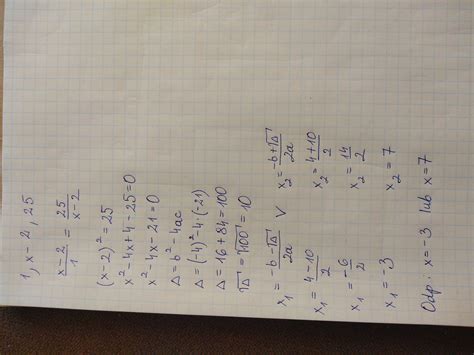 1, x-2, 25
x-2/1 = 25/x-2
(x-2)² = 25
x²-4x+4-25=0
x²-4x-21=0
Δ=b²-4ac
Δ=(-4)²-4·(-21)
Δ=16+84=100
√Δ=√100=10
x₁=-b-√Δ/2a ∨ x₂=-b+√Δ/2a
x₁=4-10/2 x₂=4+10/2
x₁=-6/2 x₂=14/2
x₁=-3 x₂=7
Odp: x=-3 lub x=7